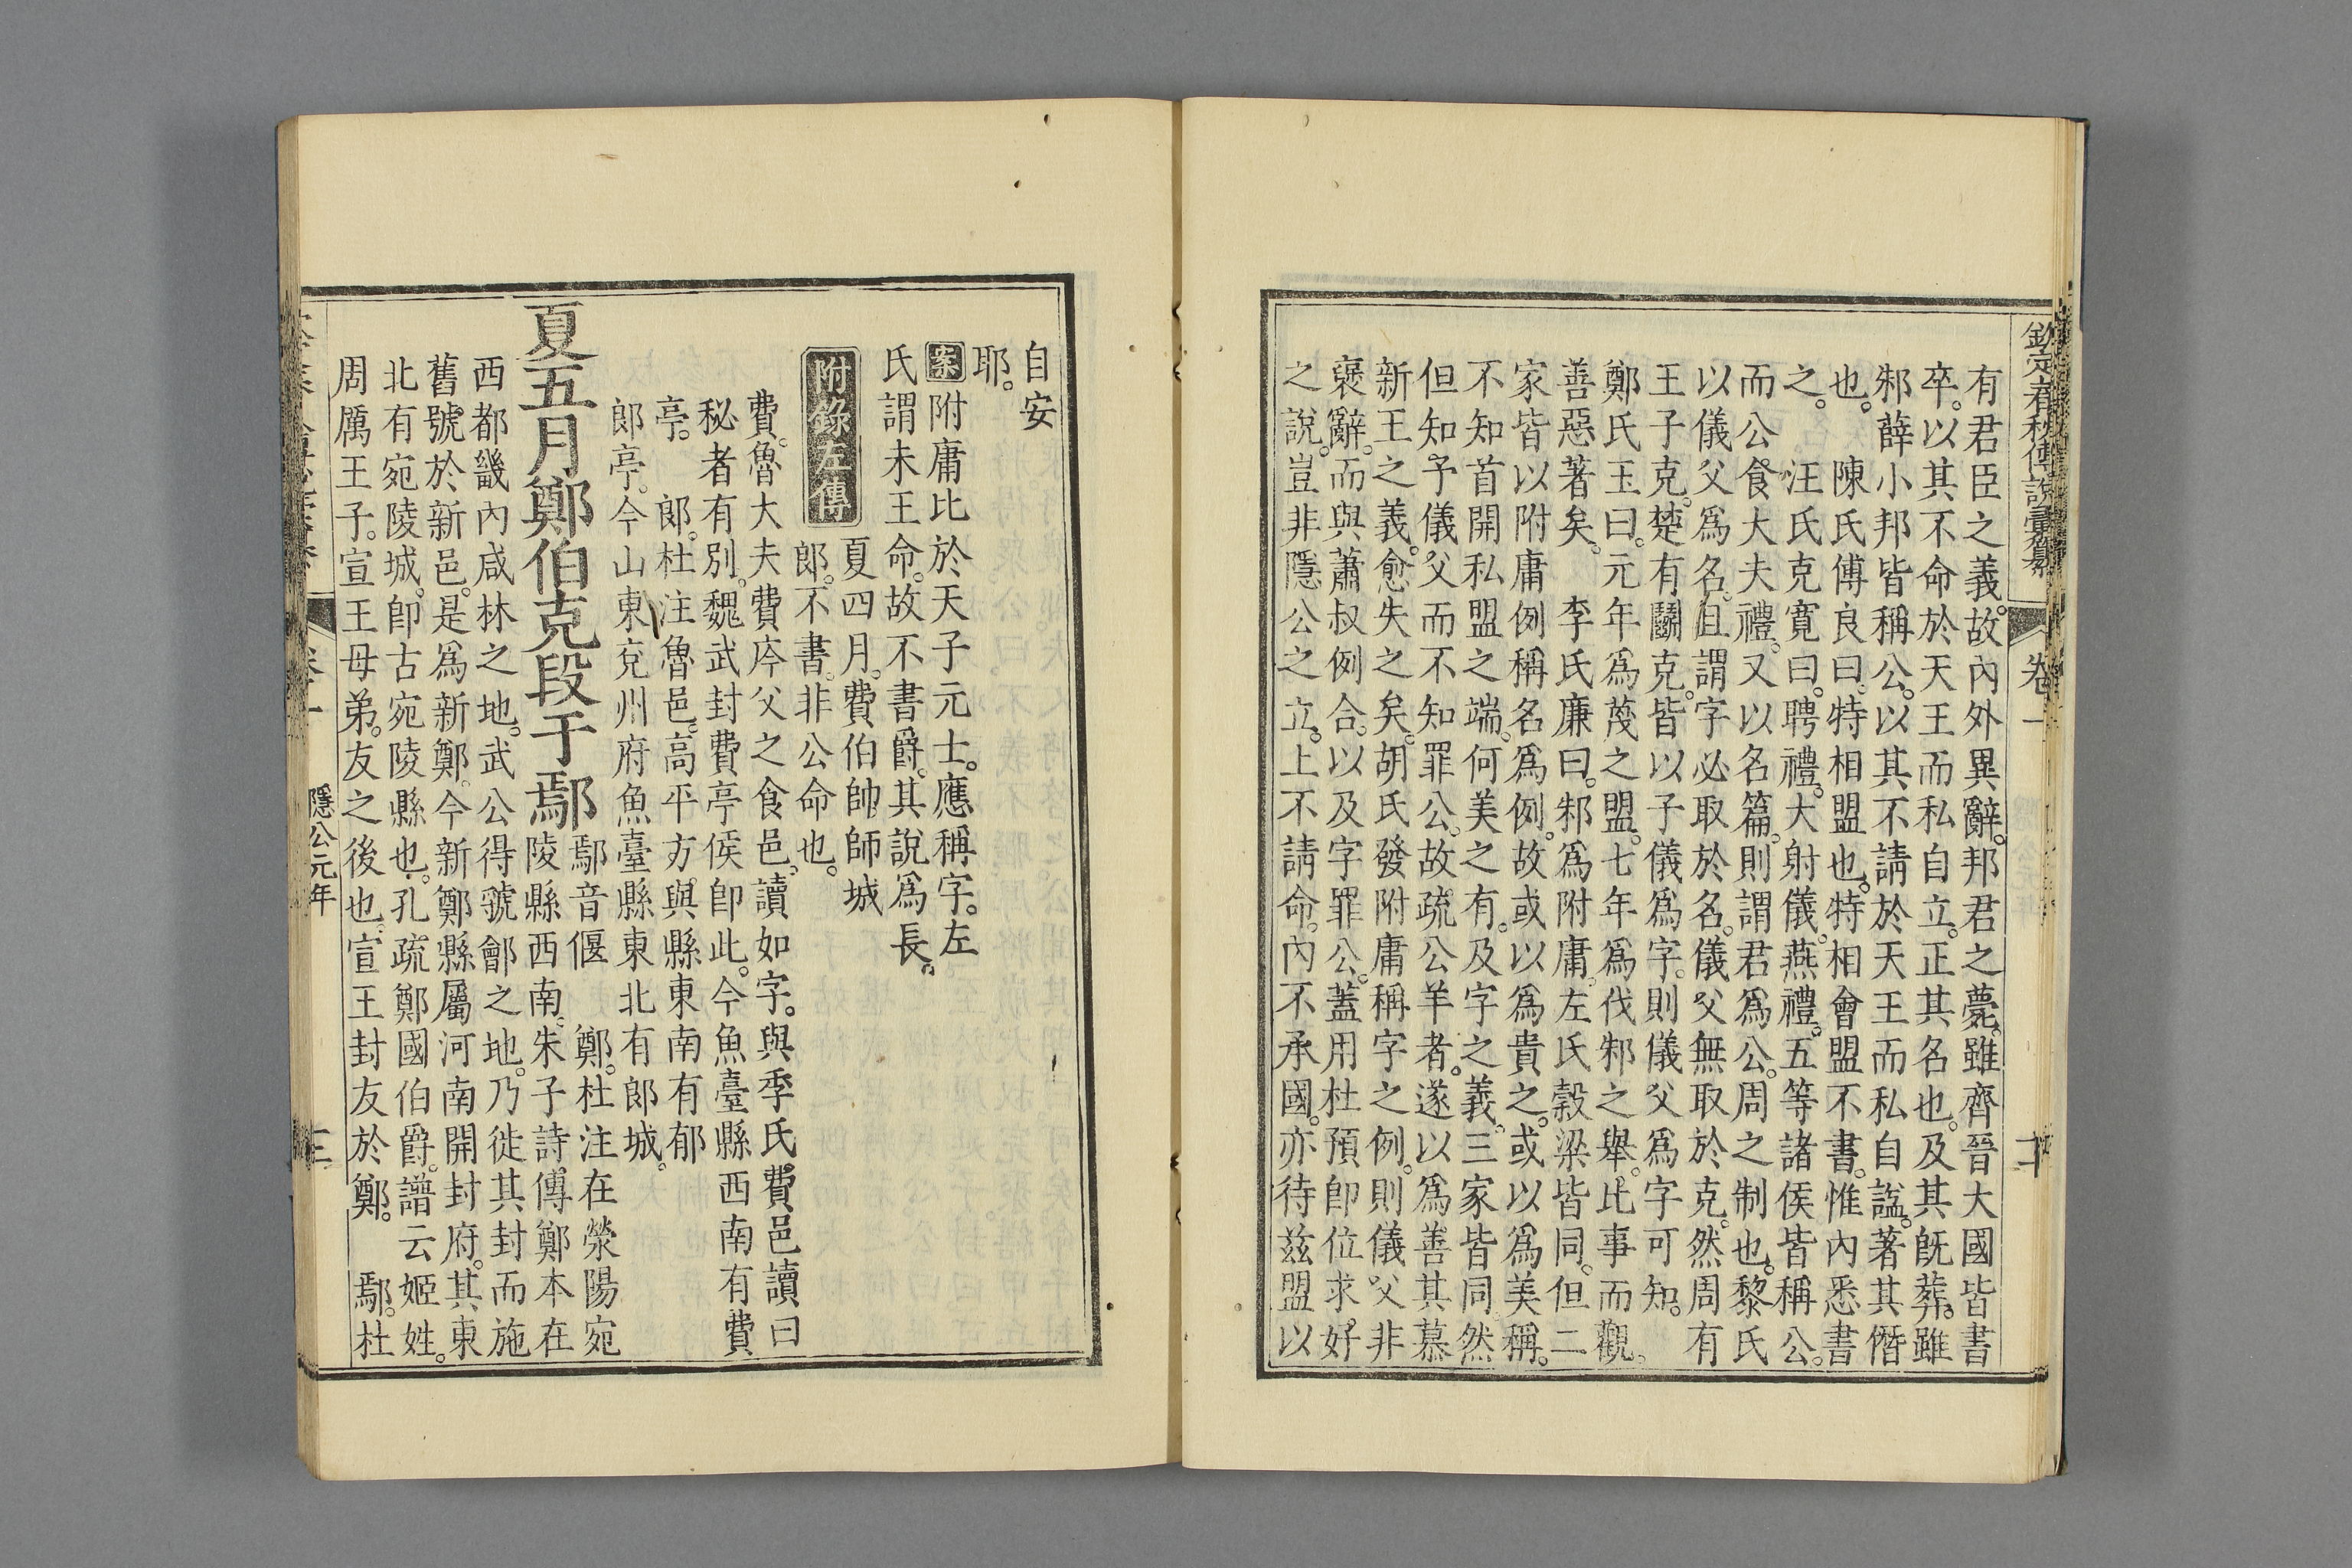 欽定春秋傳說彙纂
卷一
有君臣之義。故內外異辭。邦君之薨。雖齊晉大國皆書
卒。以其不命於天王而私自立。正其名也。及其旣葬。雖
邾薛小邦皆稱公。以其不請於天王而私自諡。著其僭
也。　陳氏傅良曰。特相盟也。特相會盟不書。惟內悉書
之。　汪氏克寬曰。聘禮。大射儀。燕禮。五等諸侯皆稱公。
而公食大夫禮。又以名篇。則謂君爲公。周之制也。黎氏
以儀父爲名。且謂字必取於名。儀父無取於克。然周有
王子克。楚有鬬克。皆以子儀爲字。則儀父爲字可知。
鄭氏玉曰。元年爲蔑之盟。七年爲伐邾之舉。比事而觀。
善惡著矣。　李氏廉曰。邾爲附庸。左氏穀梁皆同。但二
家皆以附庸例稱名爲例。故或以爲貴之。或以爲美稱。
不知首開私盟之端。何美之有。及字之義。三家皆同。然
但知予儀父而不知罪公。故疏公羊者。遂以爲善其慕
新王之義。愈失之矣。胡氏發附庸稱字之例。則儀父非
褒辭。而與蕭叔例合。以及字罪公。蓋用杜預卽位求好
之說。豈非隱公之立。上不請命。內不承國。亦待玆盟以
自安
耶。
案附庸比於天子元士。應稱字。左
氏謂未王命。故不書爵。其說爲長。
附錄左傳　夏四月。費伯帥師城
郎。不書。非公命也。
費。魯大夫費庈父之食邑。讀如字。與季氏費邑讀曰
秘者有別。魏武封費亭侯卽此。今魚臺縣西南有費
亭。　郎。杜注魯邑。高平方與縣東南有郁
郎亭。今山東兗州府魚臺縣東北有郎城。
夏五月鄭伯克段于鄢
鄢音偃　鄭。杜注在滎陽宛
陵縣西南。朱子詩傳鄭本在
西都畿內咸林之地。武公得虢鄶之地。乃徙其封而施
舊號於新邑。是爲新鄭。今新鄭縣屬河南開封府。其東
北有宛陵城。卽古宛陵縣也。孔疏鄭國伯爵。譜云姬姓。
周厲王子。宣王母弟。友之後也。宣王封友於鄭。　鄢。杜
隱公元年